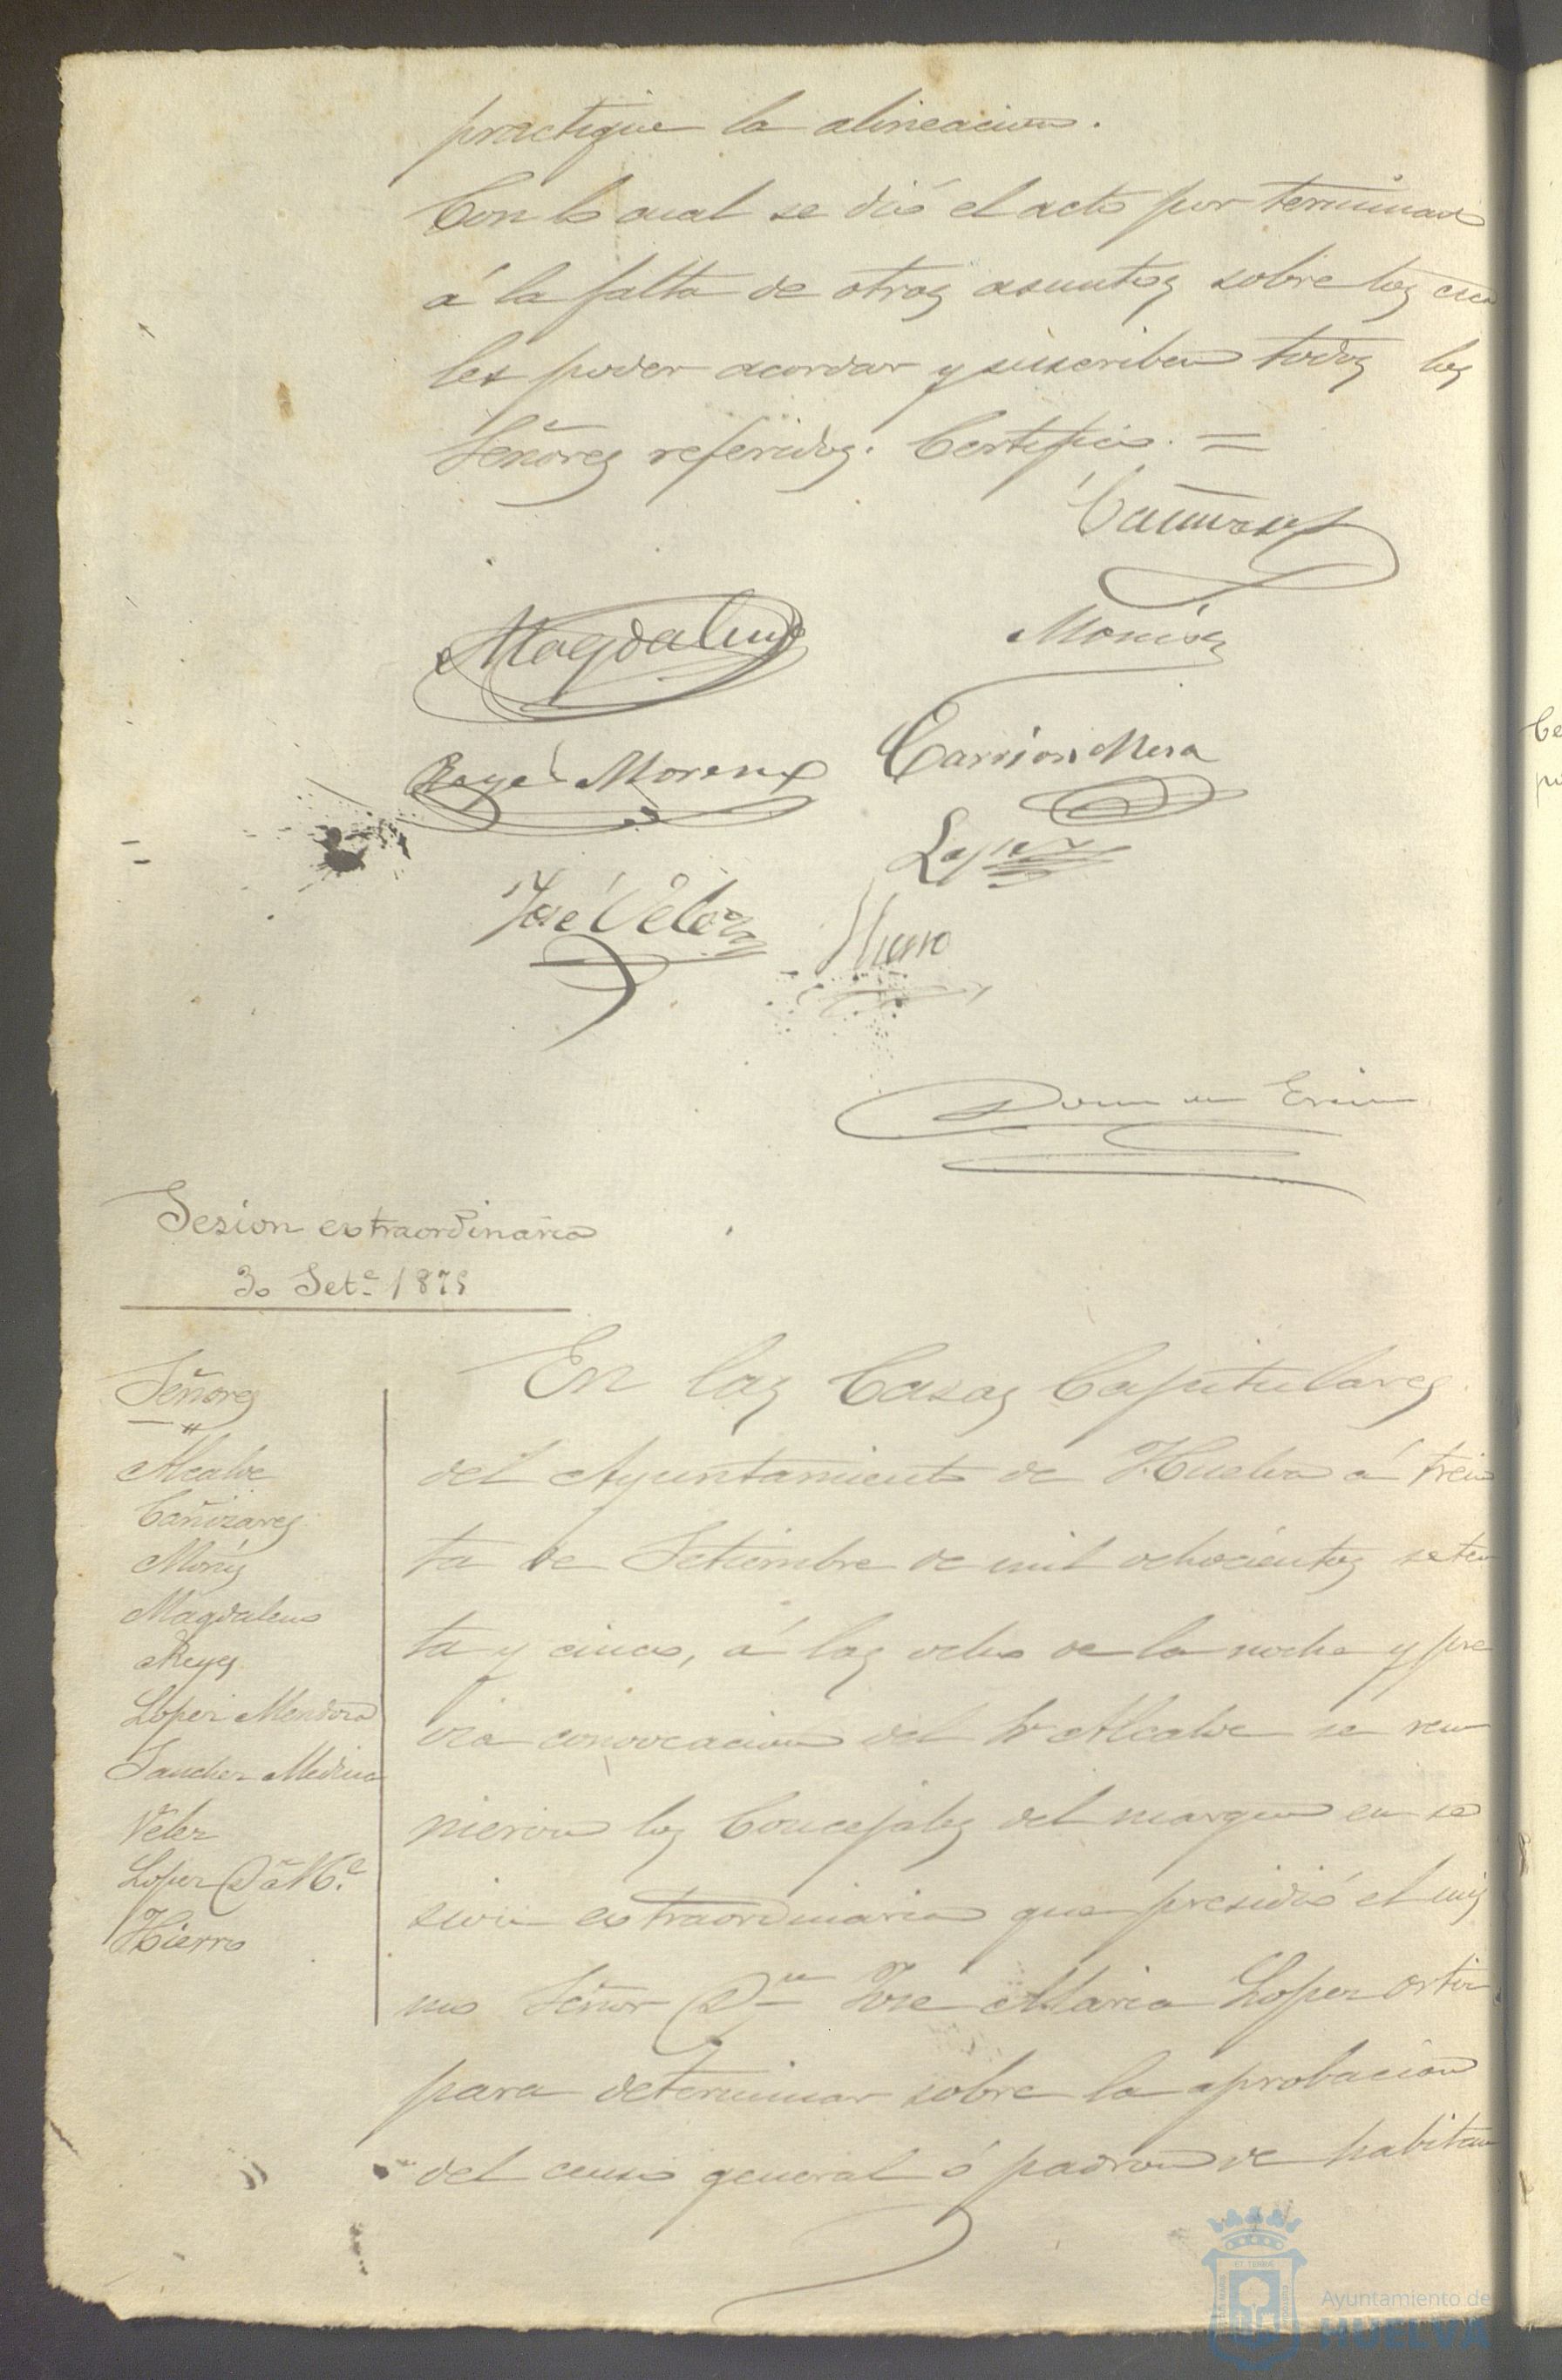 practique la alineacion.
Con lo cual se dió el acto por terminado
á la falta de otros asuntos sobre los cua
les poder acordar y suscriben todos los
Señores referidos. Certifico. =
Cañizares
Magdaleno
Monís
Reyes Moreno
Carrion Mesa
Lopez
José Vélez
Hierro
Sesion extraordinaria
30 Sete. 1875
Señores
Alcalde
Cañizares
Monís
Magdaleno
Reyes
Lopez Mendoza
Sanchez Medina
Velez
Lopez Dn. Ml.
Hierro
En las Casas Capitulares
del Ayuntamiento de Huelva á trein
ta de Setiembre de mil ochocientos seten
ta y cinco, á las ocho de la noche y pre
via convocacion del Sr Alcalde se reu
nieron los Concejales del margen en se
sion extraordinaria que presidió el mis
mo Señor Dn José Maria Lopez Ortiz
para determinar sobre la aprobacion
del censo general ó padron de habitan
Ayuntamiento de
HUELVA